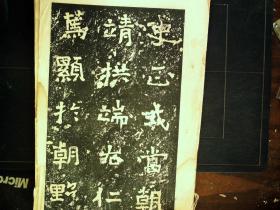 史正或當朝
靖拱端右仁
篤顯於朝野
Micro